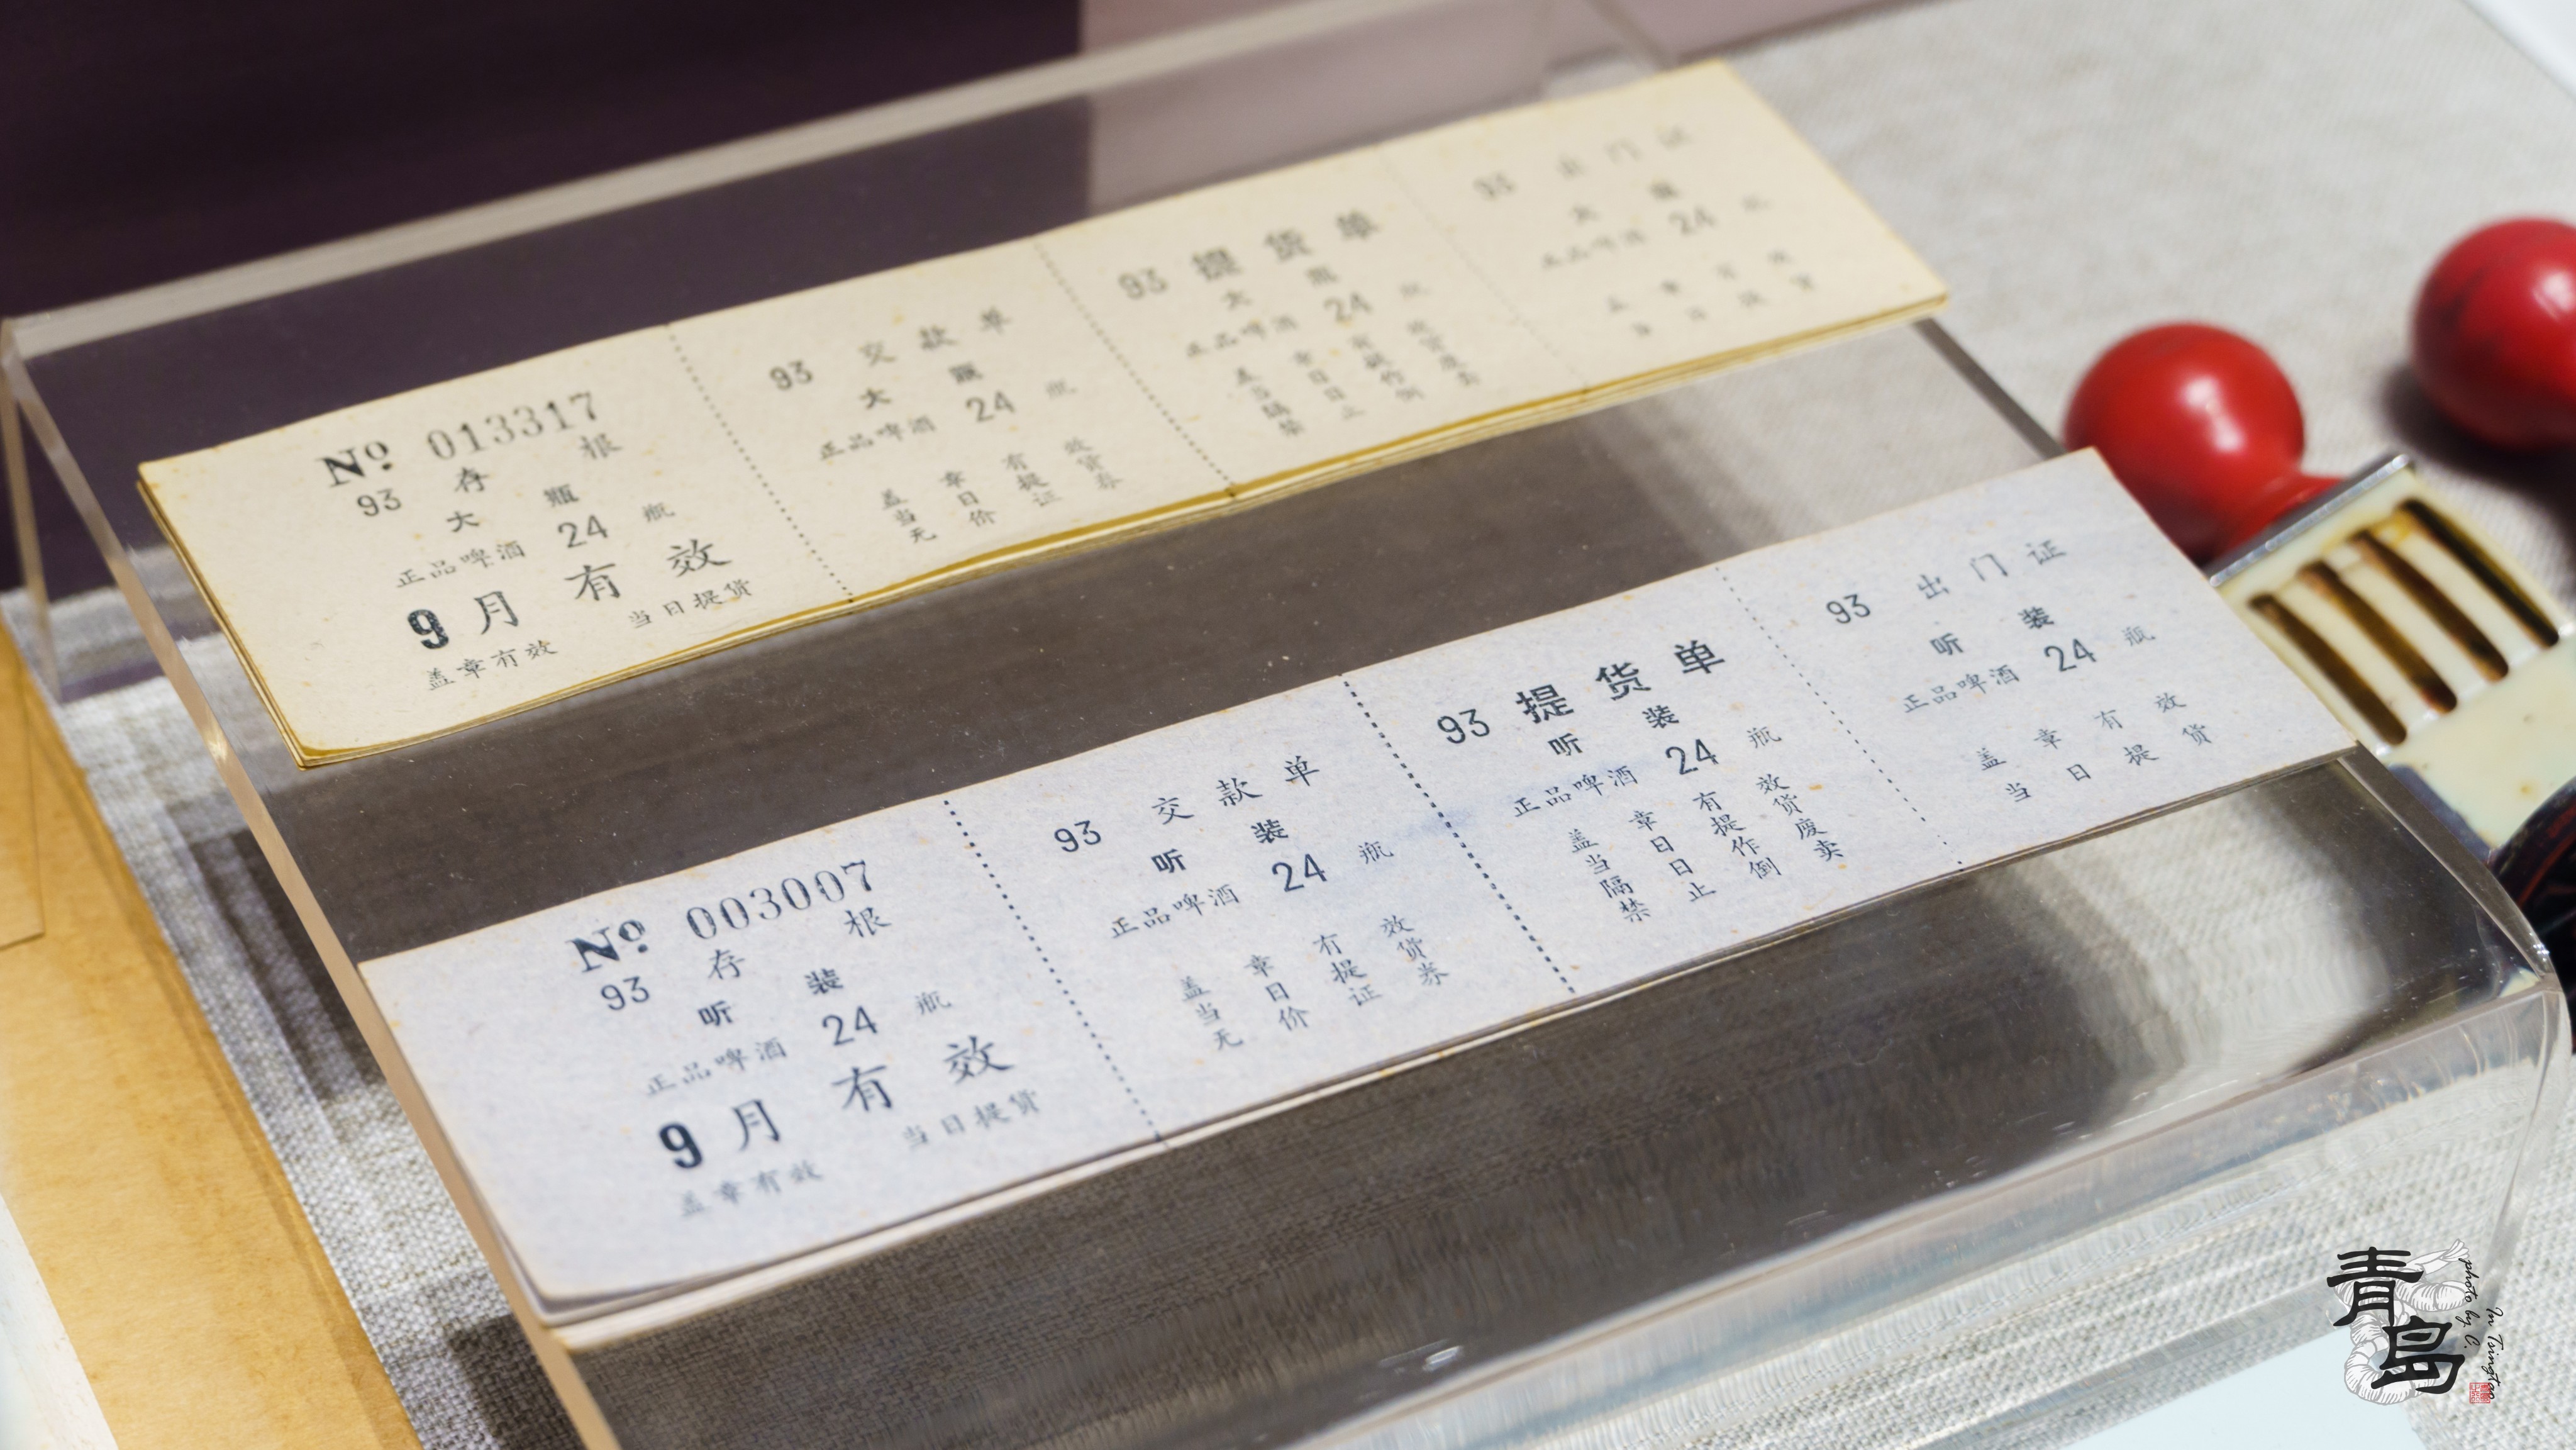 No 013317
93 存 根
大 瓶
正品啤酒 24 瓶
9月 有 效
盖章有效 当日提货
93 交款单
大 瓶
正品啤酒 24 瓶
盖 章 有 效
当 日 提 货
无 价 证 券
93 提货单
大 瓶
正品啤酒 24 瓶
盖 章 有 效
当 日 提 货
隔 日 作 废
禁 止 倒 卖
93 出门证
大 瓶
正品啤酒 24 瓶
盖 章 有 效
当 日 提 货
No 003007
93 存 根
听 装
正品啤酒 24 瓶
9月 有 效
盖章有效 当日提货
93 交款单
听 装
正品啤酒 24 瓶
盖 章 有 效
当 日 提 货
无 价 证 券
93 提货单
听 装
正品啤酒 24 瓶
盖 章 有 效
当 日 提 货
隔 日 作 废
禁 止 倒 卖
93 出门证
听 装
正品啤酒 24 瓶
盖 章 有 效
当 日 提 货
青島
photo by C.
In Tsingtao